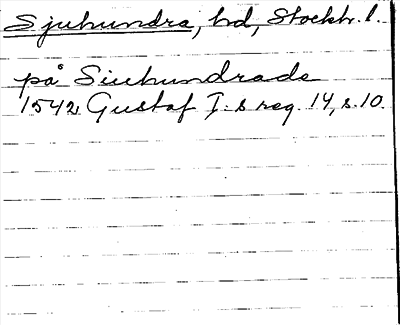 Sjuhundra, hd, Stockh. l.
på Siuhundrade
1542 Gustaf I. s reg. 14, s. 10.